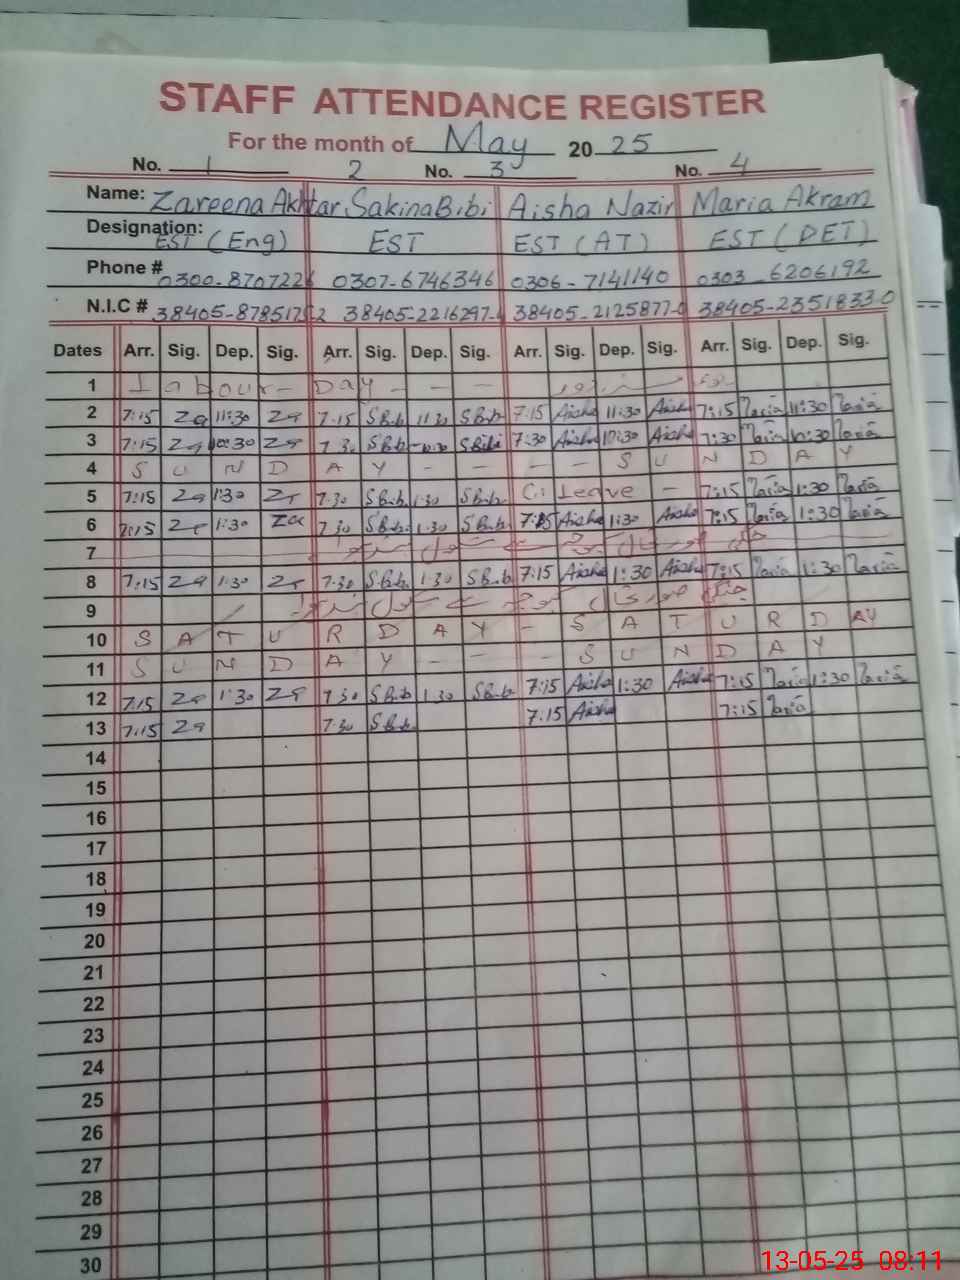 STAFF ATTENDANCE REGISTER
For the month of May 20 25
No. 1 2 No. 3 No. 4
Name: Zareena Akhtar Sakina Bibi Aisha Nazir Maria Akram
Designation: EST (Eng) EST EST (AT) EST (DET)
Phone # 0300-8707226 0307-6746346 0306-7141140 0303-6206192
N.I.C # 38405-2216297- 38405-2125877-0 38405-2351833-0
Dates Arr. Sig. Dep. Sig. Arr. Sig. Dep. Sig. Arr. Sig. Dep. Sig. Arr. Sig. Dep. Sig.
1 Labour - Day - - -
2 7:15 Za 11:30 Za 7.15 S Bibi 11.30 S Bibi 7:15 Aisha 11:30 Aisha 7:15 Maria 11:30 Maria
3 7:15 Za 10:30 Za 7.30 S Bibi 10.30 S Bibi 7:30 Aisha 10:30 Aisha 7:30 Maria 10:30 Maria
4 S U N D A Y - - - - S U N D A Y
5 7:15 Za 1:30 Za 7.30 S Bibi 1.30 S Bibi C. Leave - 7:15 Maria 1:30 Maria
6 7:15 Za 1:30 Za 7.30 S Bibi 1.30 S Bibi 7:15 Aisha 1:30 Aisha 7:15 Maria 1:30 Maria
7
8 7:15 Za 1:30 Za 7.30 S Bibi 1.30 S Bibi 7:15 Aisha 1:30 Aisha 7:15 Maria 1:30 Maria
9
10 S A T U R D A Y - S A T U R D AY
11 S U N D A Y - - - S U N D A Y
12 7:15 Za 1:30 Za 7.30 S Bibi 1.30 S Bibi 7:15 Aisha 1:30 Aisha 7:15 Maria 1:30 Maria
13 7:15 Za 7.30 S Bibi 7:15 Aisha 7:15 Maria
14
15
16
17
18
19
20
21
22
23
24
25
26
27
28
29
30
13-05-25 08:11